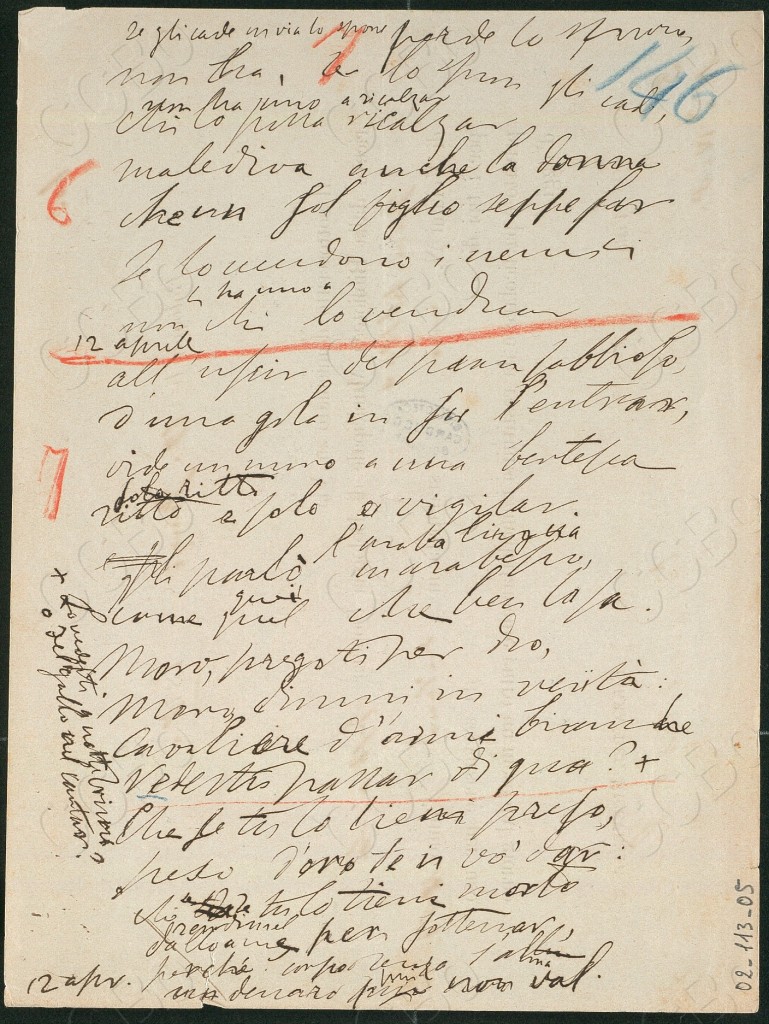 se gli cade in via lo sprone perde lo sprone
1
146
non ha, se lo spron gli cade,
non hanno a ricalzar
chi lo possa ricalzar
6
malediva anche la donna
che un sol figlio seppe far
Se lo uccidono i nemici
hanno a
non chi lo vendicar
12 aprile
all'uscir del pian sabbioso,
d'una gola in su l'entrar,
7
vide un moro a una bertesca
solo ritto
ritto e solo a vigilar.
l'araba lingua
gli parlò in arabesco,
quei
come quel che ben la sa.
Moro, pregoti per dio,
Moro, dimmi in verità:
Cavaliere d'armi bianche
Vedestu passar di qua? +
+ Lo vedesti
o del gallo nel cantar.
Che se tu lo tieni preso,
peso d'oro te ne vo' dar:
se tu lo tieni morto
per sotterrar,
perché corpo senza l'alma
12 apr. un denaro più non val.
02-113-05